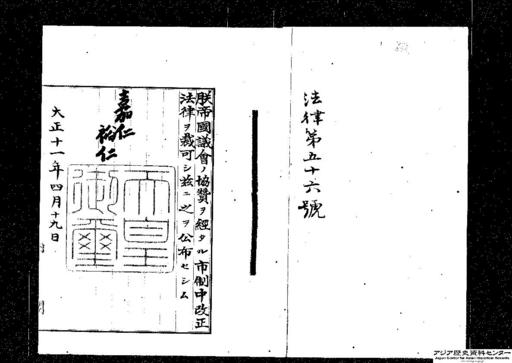 法律第五十六號
朕帝國議會ノ協贊ヲ經タル市制中改正
法律ヲ裁可シ茲ニ之ヲ公布セシム
嘉仁
裕仁
天皇御璽
大正十一年四月十九日
アジア歴史資料センター
Japan Center for Asian Historical Records